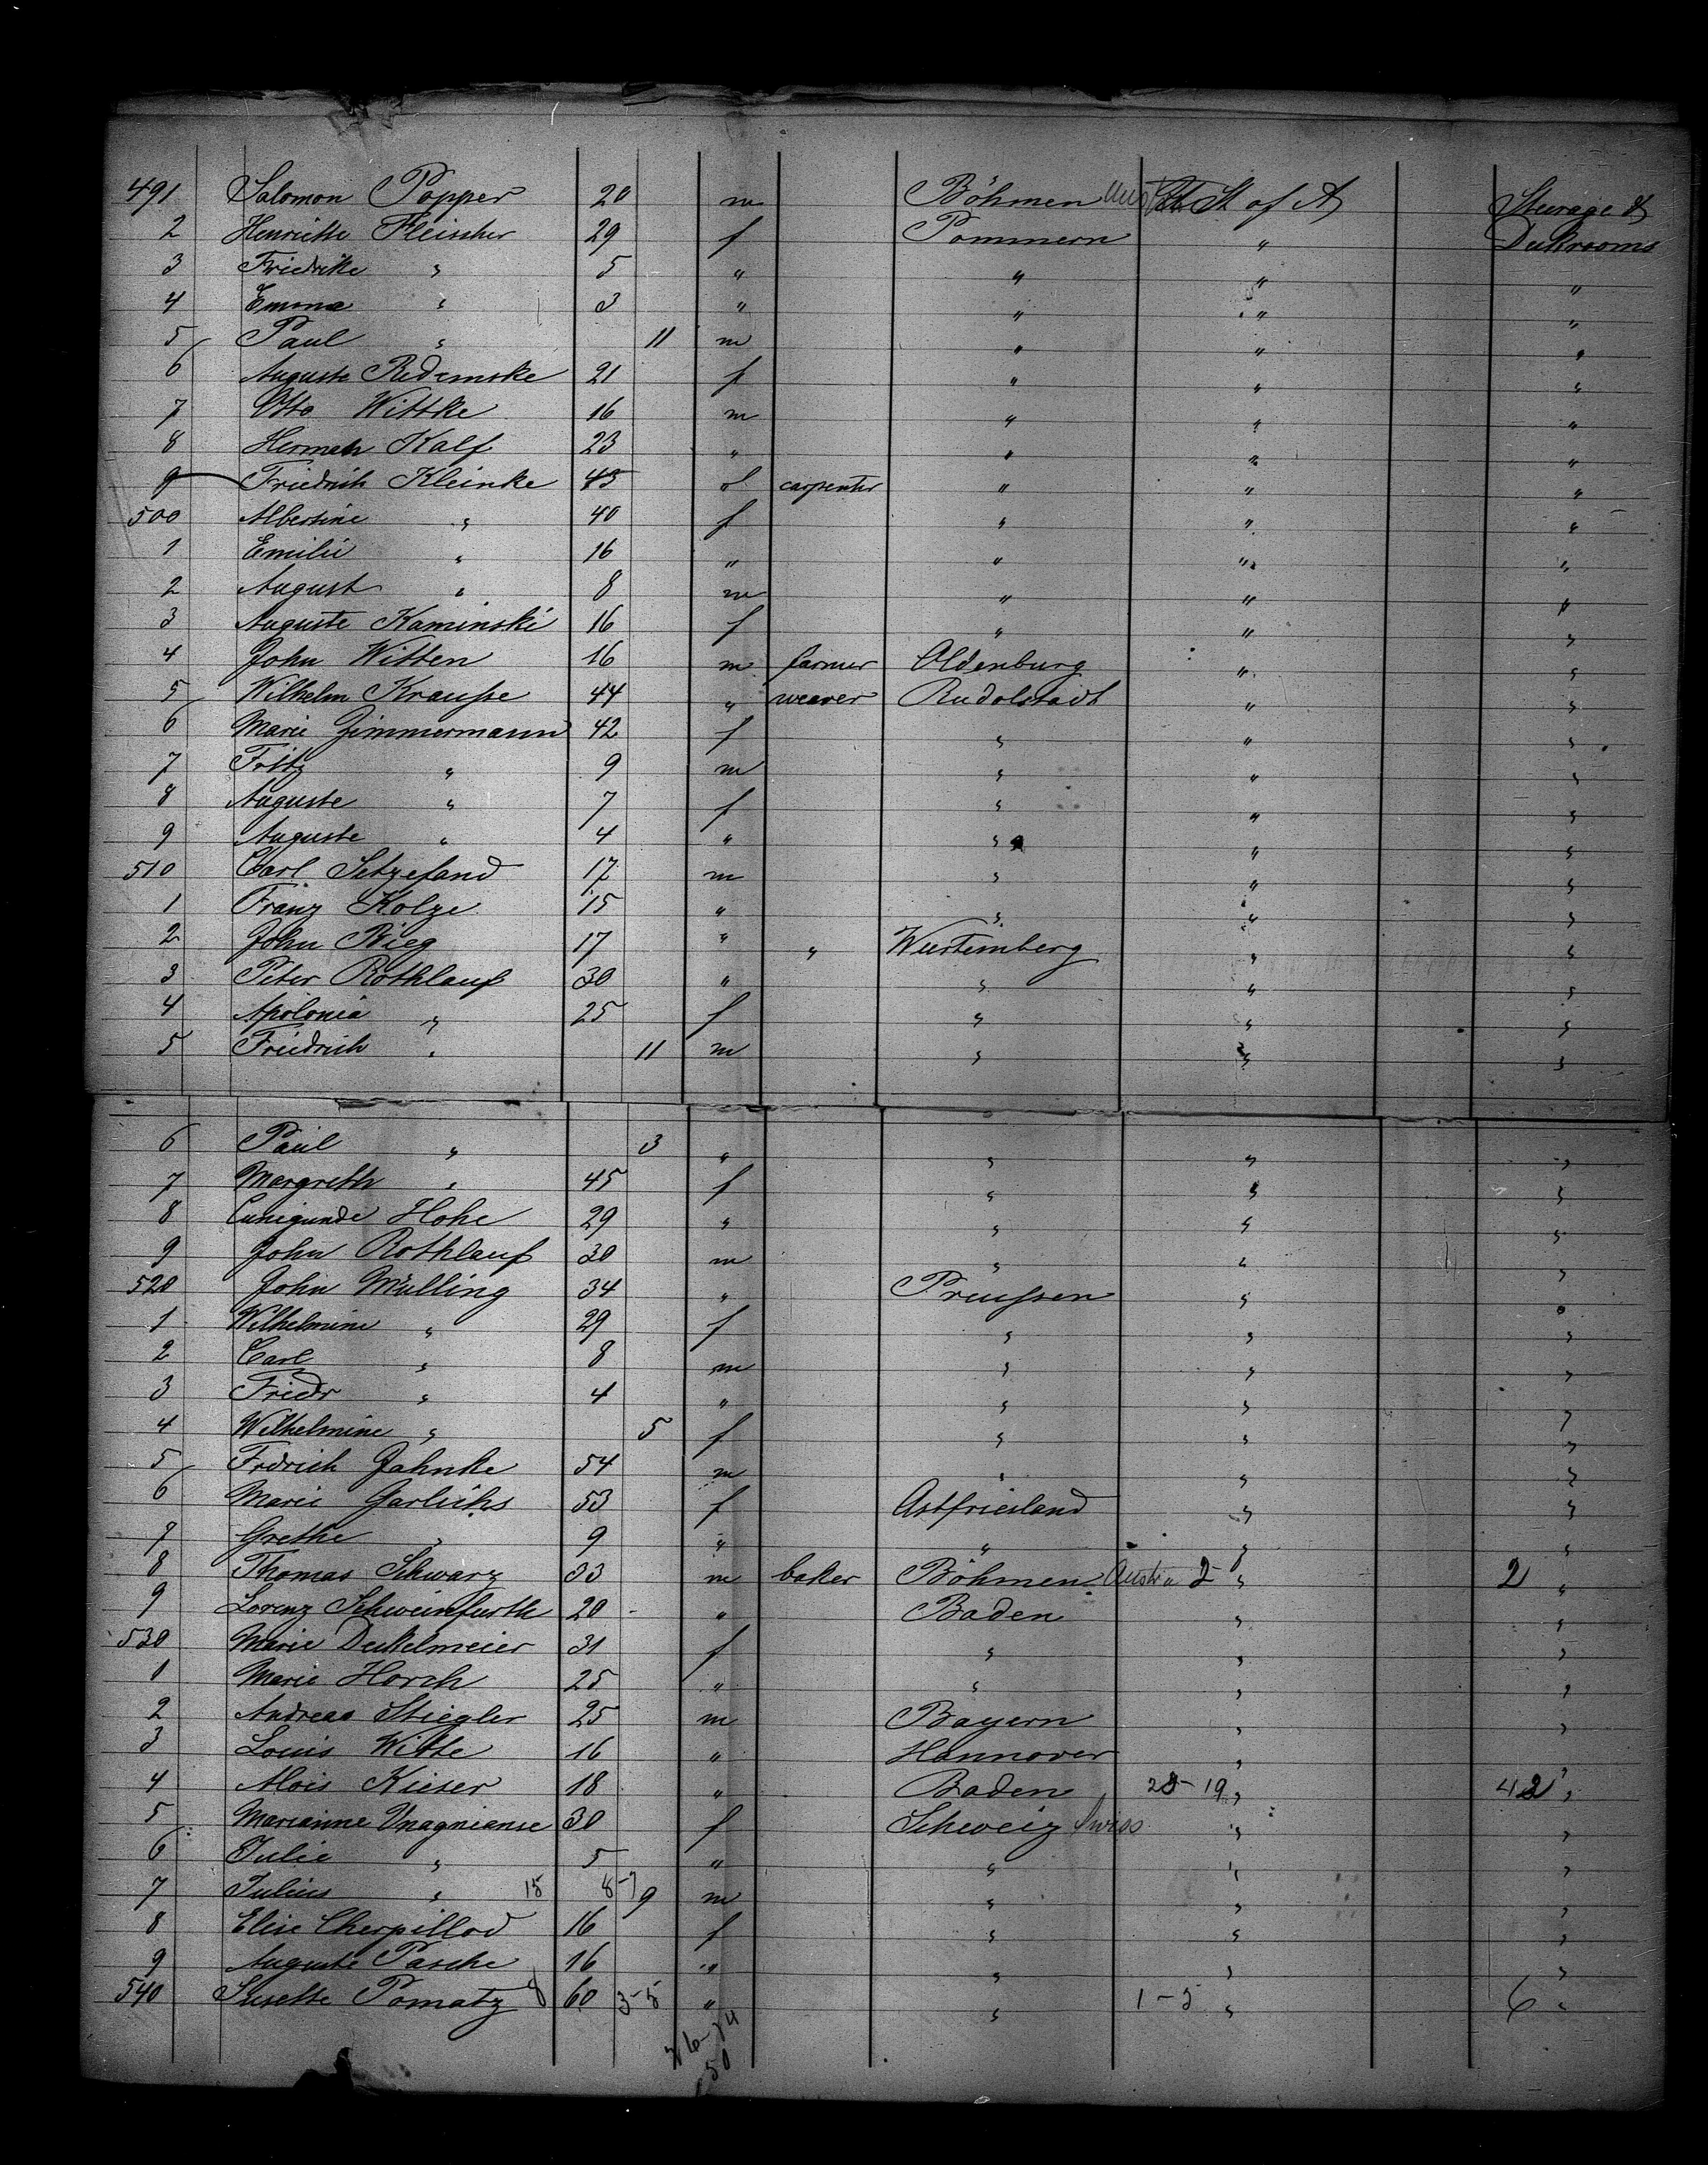 491 Salomon Popper 20 m Böhmen Aust U St of A Steerage &
2 Henriette Fleischer 29 f Pommern " Deckrooms
3 Friedrike " 5 " " " "
4 Emma " 3 " " " "
5 Paul " 11 m " " "
6 Auguste 21 f " " "
7 Otto Wittke 16 m " " "
8 Herman Kalf 23 " " " "
9 Friedrich Kleinke 45 " carpenter " " "
500 Albertine " 40 f " " "
1 Emilie " 16 " " " "
2 August " 8 m " " "
3 Auguste Kaminski 16 f " " "
4 John Witten 16 m farmer Oldenburg " "
5 Wilhelm Krauße 44 " weaver Rudolstadt " "
6 Marie Zimmermann 42 f " " "
7 Fritz " 9 m " " "
8 Auguste " 7 f " " "
9 Auguste " 4 " " " "
510 Carl Setzefand 17 m " " "
1 Franz Kolze 15 " " " "
2 John Rieg 17 " " Wurtemberg " "
3 Peter Rothlauf 30 " " " "
4 Apolonia " 25 f " " "
5 Friedrich " 11 m " " "
6 Paul " 3 " " " "
7 Margreth " 45 f " " "
8 Cunigunde Hohe 29 " " " "
9 John Rothlauf 30 m " " "
520 John Mülling 34 " Preußen " "
1 Wilhelmine " 29 f " " "
2 Carl " 8 m " " "
3 Friedr " 4 " " " "
4 Wilhelmine " 5 f " " "
5 Frdrich Jahnke 54 m " " "
6 Marie Garlichs 53 f Ostfriesland " "
7 Grethe " 9 " " " "
8 Thomas Schwarz 33 m baker Böhmen Austria 2 " 2 "
9 Lorenz Schweinfurth 20 " Baden " "
530 Marie Deckelmeier 31 f " " "
1 Marie Horch 25 " " " "
2 Andreas Stiegler 25 m Bayern " "
3 Louis Witte 16 " Hannover " "
4 Alois Kieser 18 " Baden 23-19 " 42 "
5 Marianne 30 f Schweiz Swiss " "
6 Julie " 5 " " " "
7 Julius " 15 8-7 9 m " " "
8 Elise Cherpillod 16 f " " "
9 Auguste Pasche 16 " " " "
540 Susette Pomatz 8 60 3-5 " " 1-5 " 6 "
76-74
150